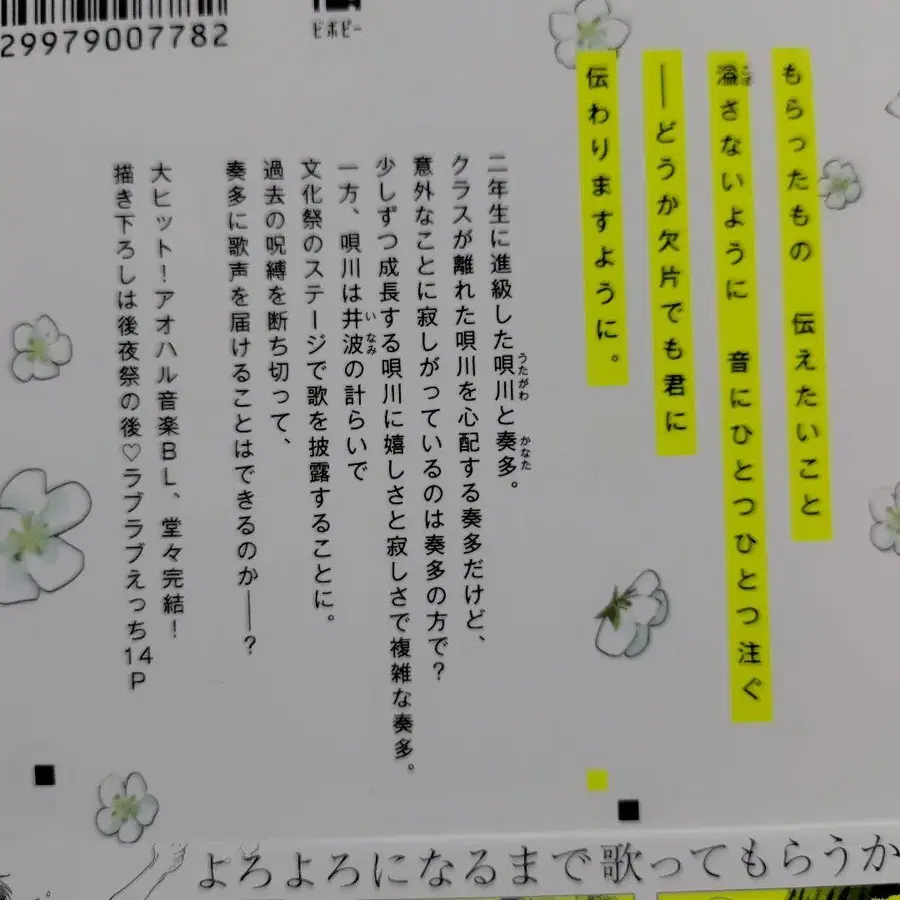 29979007782
ビボピー
もらったもの 伝えたいこと
溢さないように 音にひとつひとつ注ぐ
──どうか欠片でも君に
伝わりますように。
二年生に進級した唄川と奏多。
クラスが離れた唄川を心配する奏多だけど、
意外なことに寂しがっているのは奏多の方で?
少しずつ成長する唄川に嬉しさと寂しさで複雑な奏多。
一方、唄川は井波の計らいで
文化祭のステージで歌を披露することに。
過去の呪縛を断ち切って、
奏多に歌声を届けることはできるのか──?
大ヒット!アオハル音楽BL、堂々完結!
描き下ろしは後夜祭の後♡ラブラブえっち14P
よろよろになるまで歌ってもらうか